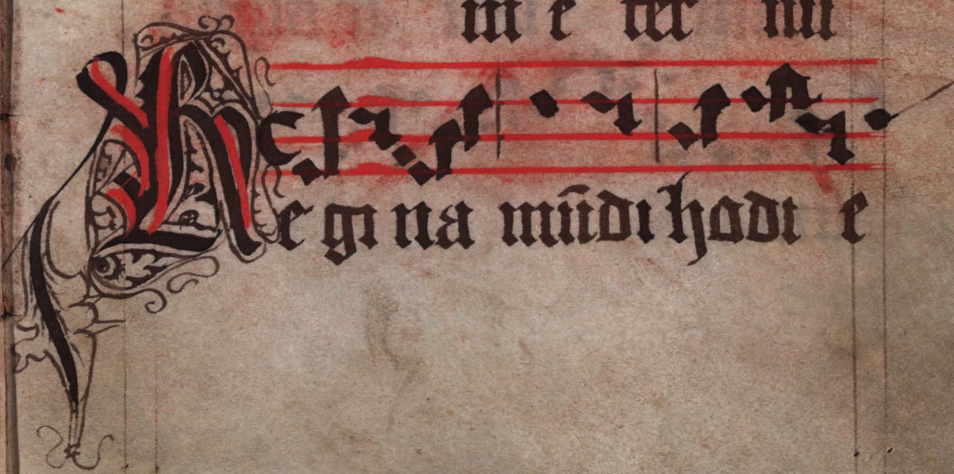 in e ter nū
Re gi na mūdi hodi e